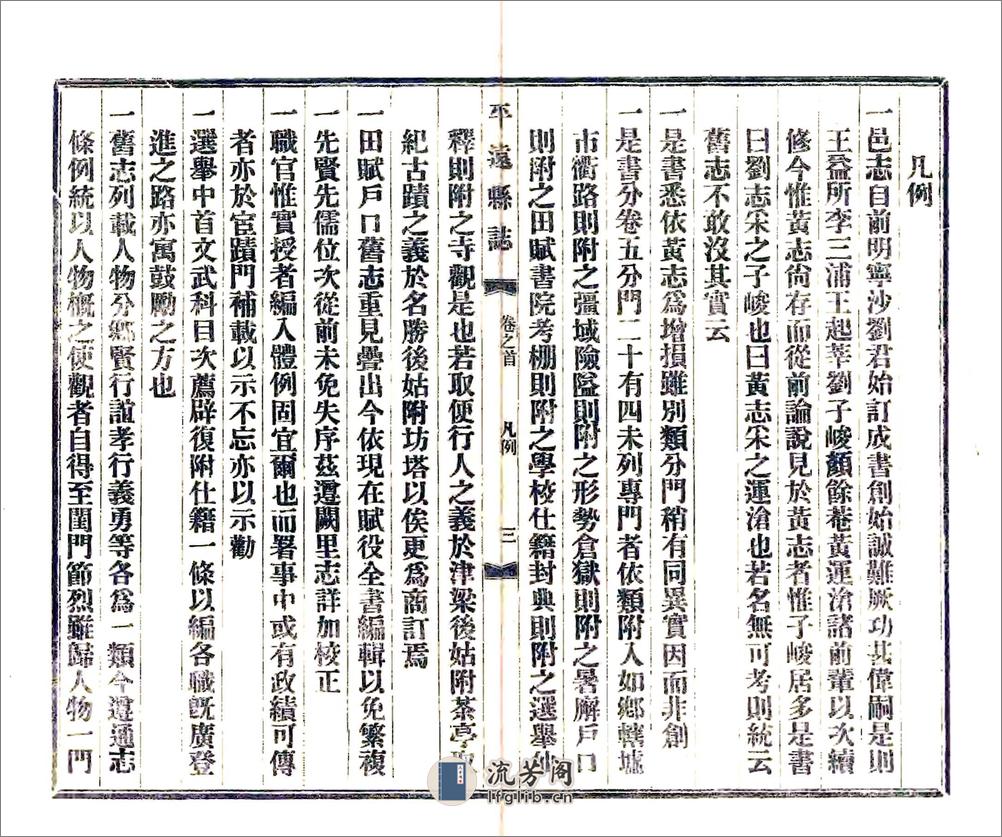 凡例
一邑志自前明寧沙劉君始訂成書創始誠難厥功甚偉嗣是則
王益所李三浦王起莘劉子峻顏餘菴黃運滄諸前輩以次續
修今惟黃志尙存而從前論說見於黃志者惟子峻居多是書
曰劉志宋之子峻也曰黃志宋之運滄也若名無可考則統云
舊志不敢沒其實云
一是書悉依黃志爲增損雖別類分門稍有同異實因而非創
一是書分卷五分門二十有四未列專門者依類附入如鄉轄墟
市衢路則附之彊域險隘則附之形勢倉獄則附之署廨戶口
則附之田賦書院考棚則附之學校仕籍封典則附之選舉仙
平遠縣誌
卷之首
凡例
三
釋則附之寺觀是也若取便行人之義於津梁後姑附茶亭取
紀古蹟之義於名勝後姑附坊塔以俟更爲商訂焉
一田賦戶口舊志重見疊出今依現在賦役全書編輯以免繁複
一先賢先儒位次從前未免失序茲遵闕里志詳加校正
一職官惟實授者編入體例固宜爾也而署事中或有政績可傳
者亦於宦蹟門補載以示不忘亦以示勸
一選舉中首文武科目次薦辟復附仕籍一條以編各職旣廣登
進之路亦寓鼓勵之方也
一舊志列載人物分鄉賢行誼孝行義勇等各爲一類今遵通志
條例統以人物概之使觀者自得至閨門節烈雖歸人物一門
流芳阁
lfglib.cn